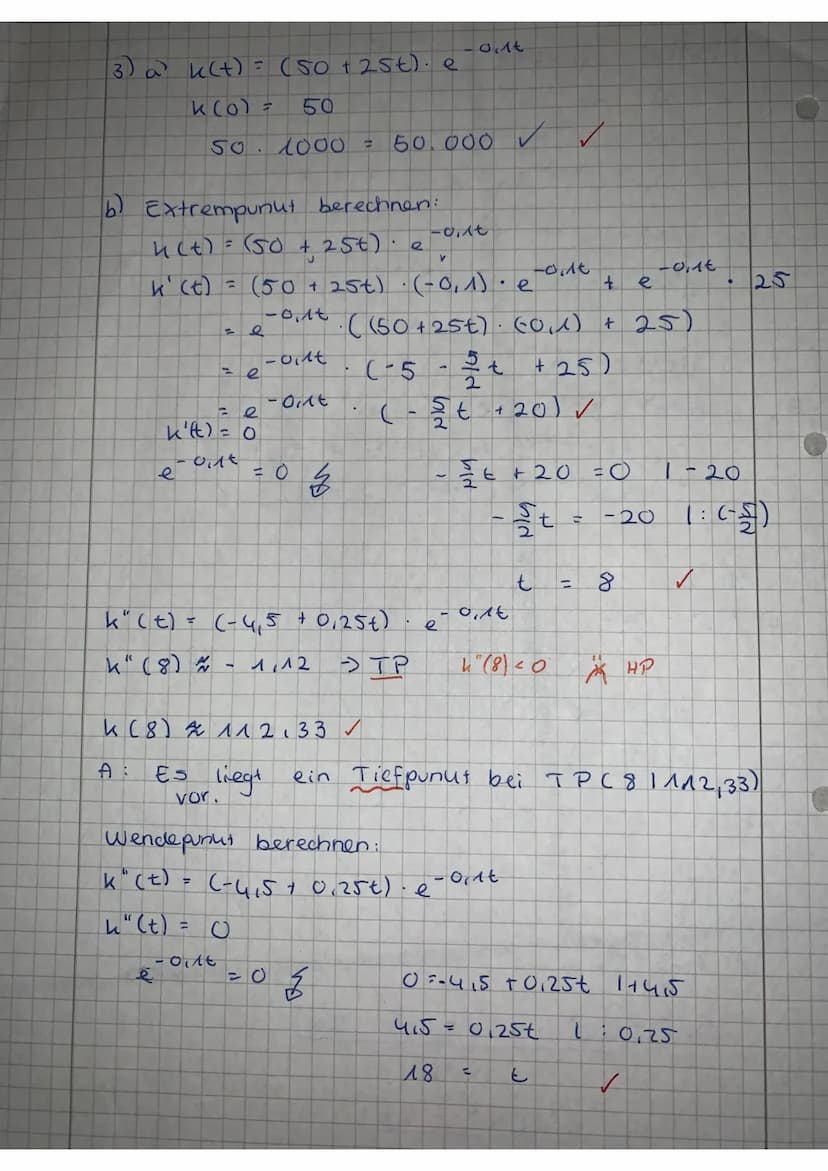 3) a) k(t) = (50 + 25t) · e^-0,1t
k(0) = 50
50 · 1000 = 50.000 ✓ ✓
b) Extrempunkt berechnen:
k(t) = (50 + 25t) · e^-0,1t
k'(t) = (50 + 25t) · (-0,1) · e^-0,1t + e^-0,1t · 25
= e^-0,1t · ((50 + 25t) · (-0,1) + 25)
= e^-0,1t · (-5 - 5/2 t + 25)
= e^-0,1t · (- 5/2 t + 20) ✓
k'(t) = 0
e^-0,1t = 0 ↯ - 5/2 t + 20 = 0 | - 20
- 5/2 t = -20 | : (- 5/2)
t = 8 ✓
k"(t) = (-4,5 + 0,25t) · e^-0,1t
k"(8) ≈ - 1,12 -> TP k"(8) < 0 HP
k(8) ≈ 112,33 ✓
A: Es liegt ein Tiefpunkt bei TP(8|112,33)
vor.
Wendepunkt berechnen:
k"(t) = (-4,5 + 0,25t) · e^-0,1t
k"(t) = 0
e^-0,1t = 0 ↯ 0 = -4,5 + 0,25t | + 4,5
4,5 = 0,25t | : 0,25
18 = t ✓